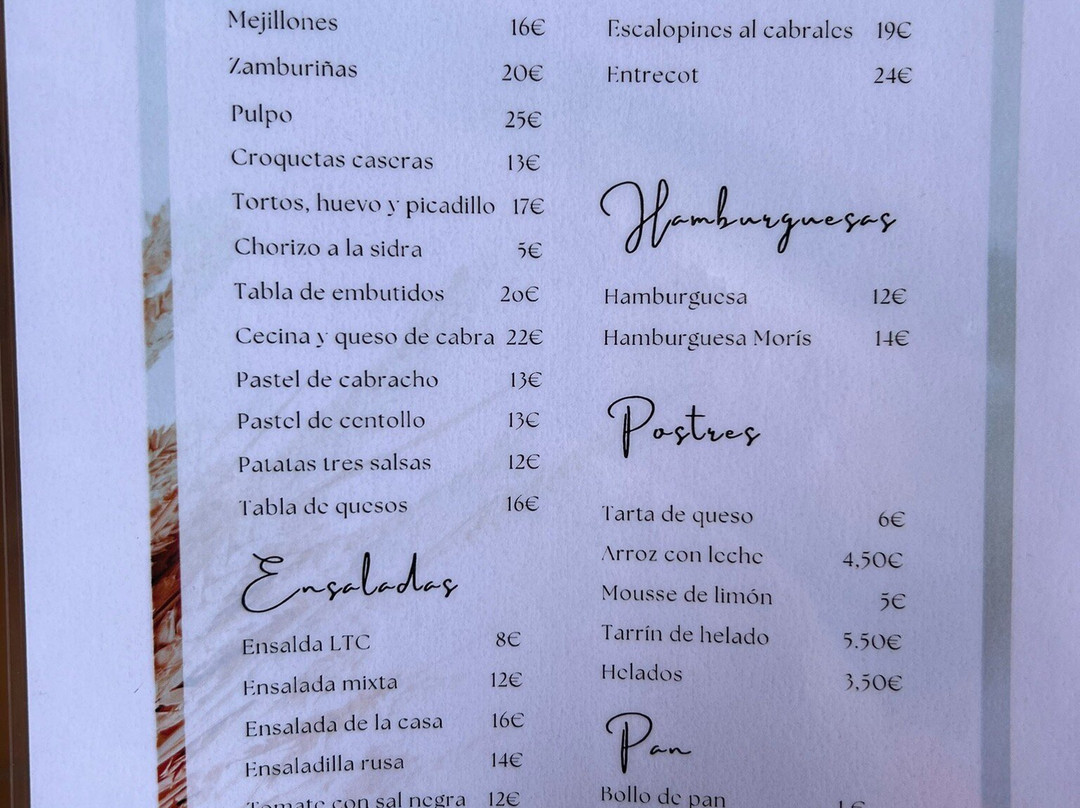 Mejillones 16€
Zamburiñas 20€
Pulpo 25€
Croquetas caseras 13€
Tortos, huevo y picadillo 17€
Chorizo a la sidra 5€
Tabla de embutidos 20€
Cecina y queso de cabra 22€
Pastel de cabracho 13€
Pastel de centollo 13€
Patatas tres salsas 12€
Tabla de quesos 16€
Ensaladas
Ensalda LTC 8€
Ensalada mixta 12€
Ensalada de la casa 16€
Ensaladilla rusa 14€
Tomate con sal negra 12€
Escalopines al cabrales 19€
Entrecot 24€
Hamburguesas
Hamburguesa 12€
Hamburguesa Morís 14€
Postres
Tarta de queso 6€
Arroz con leche 4,50€
Mousse de limón 5€
Tarrín de helado 5.50€
Helados 3,50€
Pan
Bollo de pan 1€